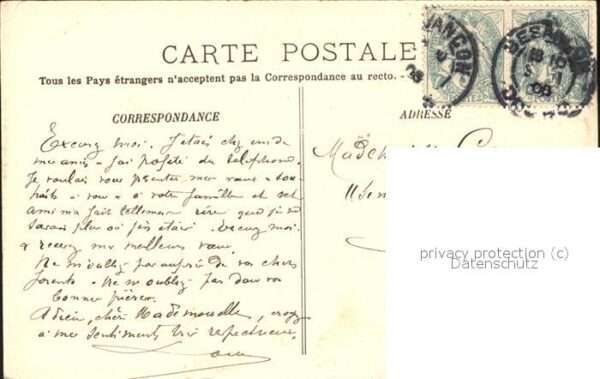 CARTE POSTALE
Tous les Pays étrangers n'acceptent pas la Correspondance au recto. -
CORRESPONDANCE
ADRESSE
BESANCON
Excusez moi. J'étais chez un de
mes amis - j'ai profité du téléphone.
Je voulais vous présenter mes vœux - sou-
haits à vous - à votre famille et cet
ami m'a fait tellement rire que je ne
savais plus où j'en étais. Excusez moi -
& recevez mes meilleurs vœux
Ne m'oubliez pas auprès de vos chers
parents - Ne m'oubliez pas dans vos
bonnes prières.
Adieu, chère Mademoiselle, croyez
à mes sentiments très respectueux,
Mademoiselle
privacy protection (c)
Datenschutz